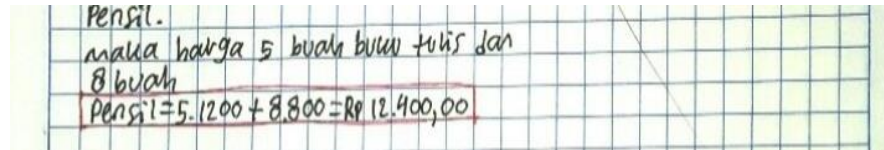 Pensil.
maka harga 5 buah buku tulis dan
8 buah
Pensil=5.1200+8.800=Rp 12.400,00